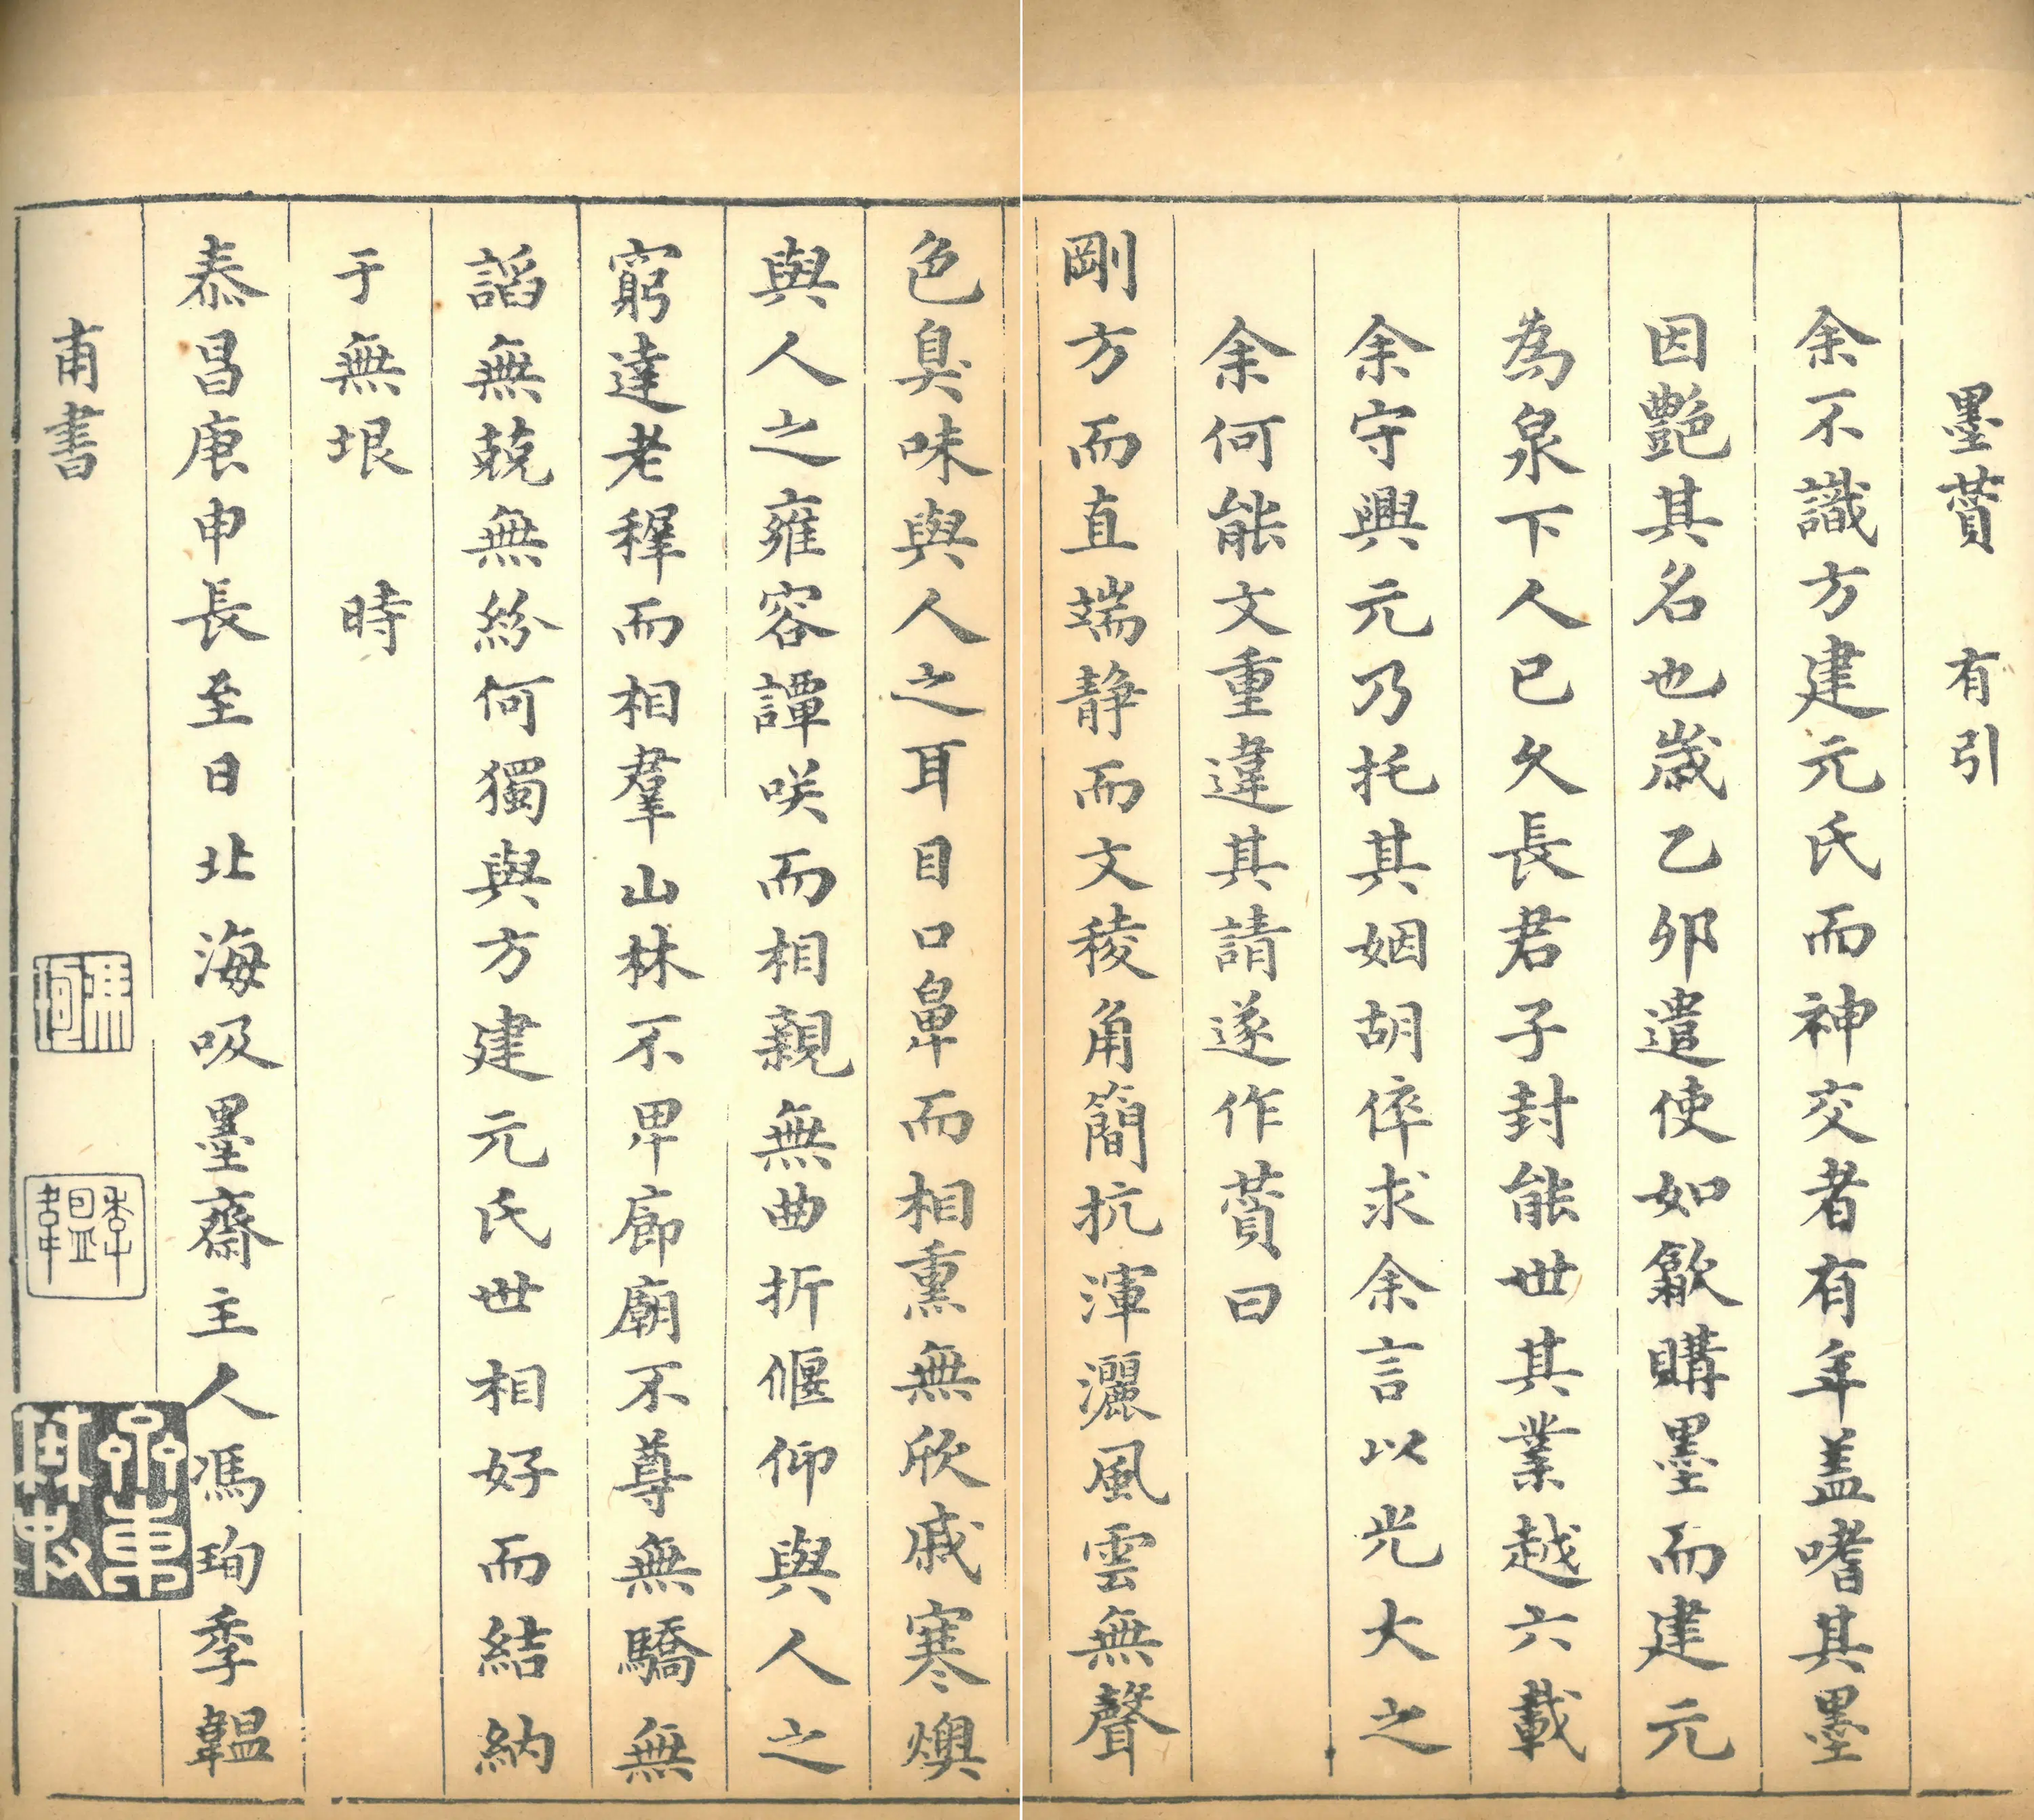 墨贊　有引
余不識方建元氏而神交者有年盖嗜其墨
因艷其名也歲乙卯遣使如歙購墨而建元
為泉下人已久長君子封能世其業越六載
余守興元乃托其姻胡倅求余言以光大之
余何能文重違其請遂作贊曰
剛方而直端靜而文稜角簡抗渾灑風雲無聲
色臭味與人之耳目口鼻而相熏無欣戚寒燠
與人之雍容譚咲而相親無曲折偃仰與人之
窮達老穉而相羣山林不卑廊廟不尊無驕無
謟無兢無紛何獨與方建元氏世相好而結納
于無垠　時
泰昌庚申長至日北海吸墨齋主人馮珣季韞
甫書
馮珣
季韞